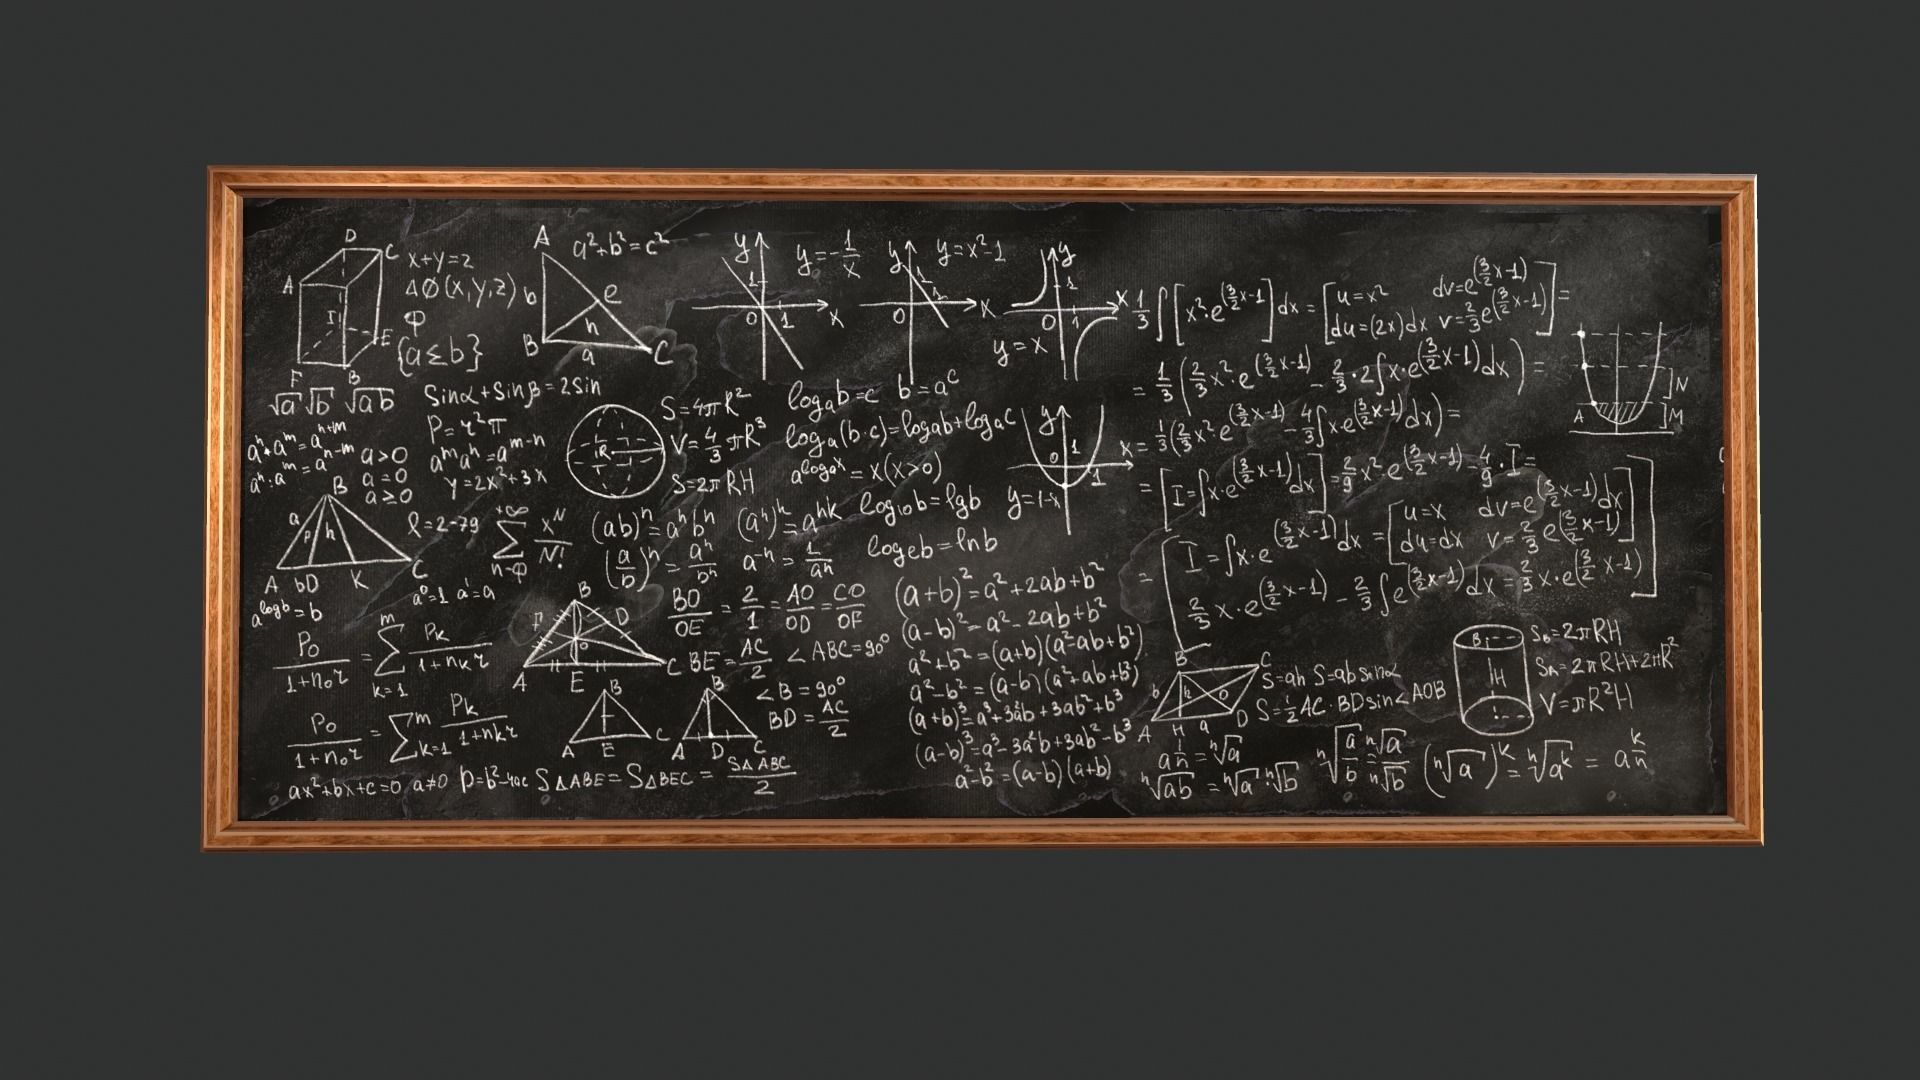 D
C
A
I
E
F
B
x+y=2
ΔØ(x,y,z)
Φ
{a≤b}
C
√a √b √ab
A
a²+b²=c²
b
e
h
B
a
C
y
y=-1/x
1
0 1 x
y
y=x²-1
1
0
x
y
1
0 1
x
y=x
Sinα+Sinβ=2sin
P=r²π
aⁿ+aᵐ=aⁿ⁺ᵐ
aⁿ:aᵐ=aⁿ⁻ᵐ
a>0
a=0
a≥0
aᵐaⁿ=aᵐ⁻ⁿ
y=2x²+3x
R
S=4πR²
V=4/3 πR³
S=2πRH
logab=c b=aᶜ
loga(b·c)=logab+logac
a^logaˣ=x(x>0)
log10b=lgb
logeb=lnb
y
1
0 1
x
y=1-x
B
a
p h
A bD K C
ℓ=2-79
+∞
∑ xᴺ/N!
n-φ
(ab)ⁿ=aⁿbⁿ (aⁿ)ᵏ=aⁿᵏ
(a/b)ⁿ=aⁿ/bⁿ a⁻ⁿ=1/aⁿ
a^logb=b
a⁰=1 a¹=a
P₀/(1+n₀r) = ∑ᵐ k=1 Pk/(1+nkr)
P₀/(1+n₀r) = ∑ᵐ k=1 Pk/(1+nkr)
ax²+bx+c=0 a≠0
B
F D
o
A E C
BO/OE = 2/1 = AO/OD = CO/OF
BE=AC/2 ∠ABC=90°
B
A E C
B
A D C
∠B=90°
BD=AC/2
S△ABE=S△BEC=S△ABC/2
(a+b)²=a²+2ab+b²
(a-b)²=a²-2ab+b²
a²+b²=(a+b)(a²-ab+b²)
a²-b²=(a-b)(a²+ab+b²)
(a+b)³=a³+3a²b+3ab²+b³
(a-b)³=a³-3a²b+3ab²-b³
a²-b²=(a-b)(a+b)
1/3∫[x²·e^(3/2x-1)]dx=[u=x² dv=e^(3/2x-1)
du=(2x)dx v=2/3e^(3/2x-1)]=
=1/3(2/3x²·e^(3/2x-1)-2/3·2∫x·e^(3/2x-1)dx)=
=1/3(2/3x²·e^(3/2x-1)-4/3∫xe^(3/2x-1)dx)=
=[I=∫x·e^(3/2x-1)dx]=2/9x²·e^(3/2x-1)-4/9·I=
=[I=∫x·e^(3/2x-1)dx=[u=x dv=e^(3/2x-1)dx
du=dx v=2/3e^(3/2x-1)]
2/3x·e^(3/2x-1)-2/3∫e^(3/2x-1)dx=2/3x·e^(3/2x-1)]
N
A
M
B C
b h O
A H a D
S=ah S=absinα
S=1/2AC·BDsin∠AOB
B
H
Sb=2πRH
Sn=2πRH+2πR²
V=πR²H
a^1/n=ⁿ√a
ⁿ√ab=ⁿ√a·ⁿ√b
ⁿ√a/b=ⁿ√a/ⁿ√b
(ⁿ√a)ᵏ=ⁿ√aᵏ=a^k/n